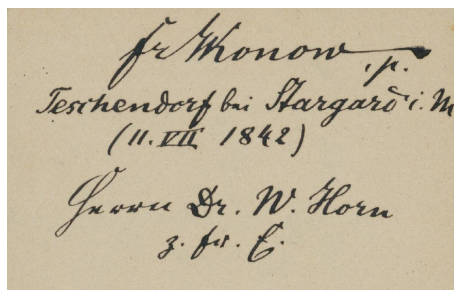 Fr Konow, p.
Teschendorf bei Stargard i. M
(11. VII 1842)
Herrn Dr. W. Horn
z. fr. E.